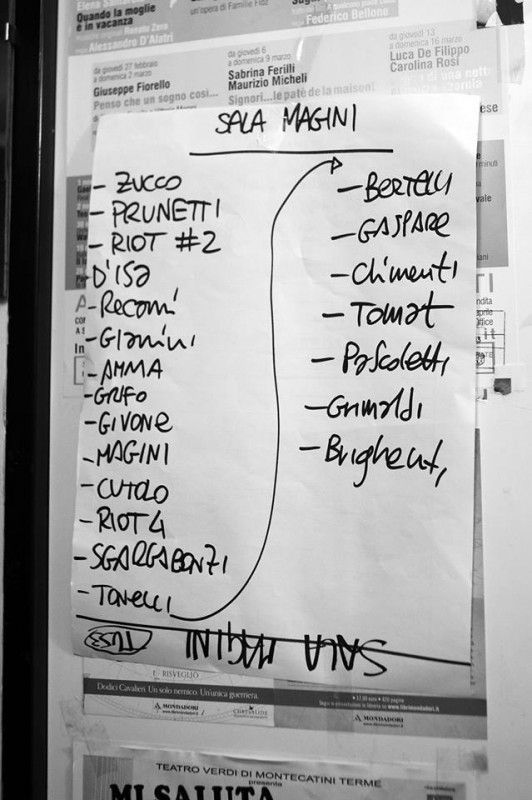 Elena S
Quando la moglie
è in vacanza
Renato Zero
Alessandro D'Alatri
un'opera di Familie Flöz
Federico Bellone
da giovedì 27 febbraio
a domenica 2 marzo
Giuseppe Fiorello
Penso che un sogno così...
da giovedì 6
a domenica 9 marzo
Sabrina Ferilli
Maurizio Micheli
Signori...le paté de la maison!
da giovedì 13
a domenica 16 marzo
Luca De Filippo
Carolina Rosi
SALA MAGINI
- ZUCCO
- PRUNETTI
- RIOT #2
- D'ISA
- Recami
- Giannini
- AMMA
- GRIFO
- GIVONE
- MAGINI
- CUTOLO
- RIOT 4
- SGARGABONZI
- TONELLI
- BERTELLI
- GASPARE
- Chimenti
- Tomat
- Pascoletti
- Grimaldi
- Brighenti
SALA MAGINI
IL RISVEGLIO
Dodici Cavalieri. Un solo nemico. Un'unica guerriera.
MONDADORI
MONDADORI
TEATRO VERDI DI MONTECATINI TERME
presente
MI SALUTA